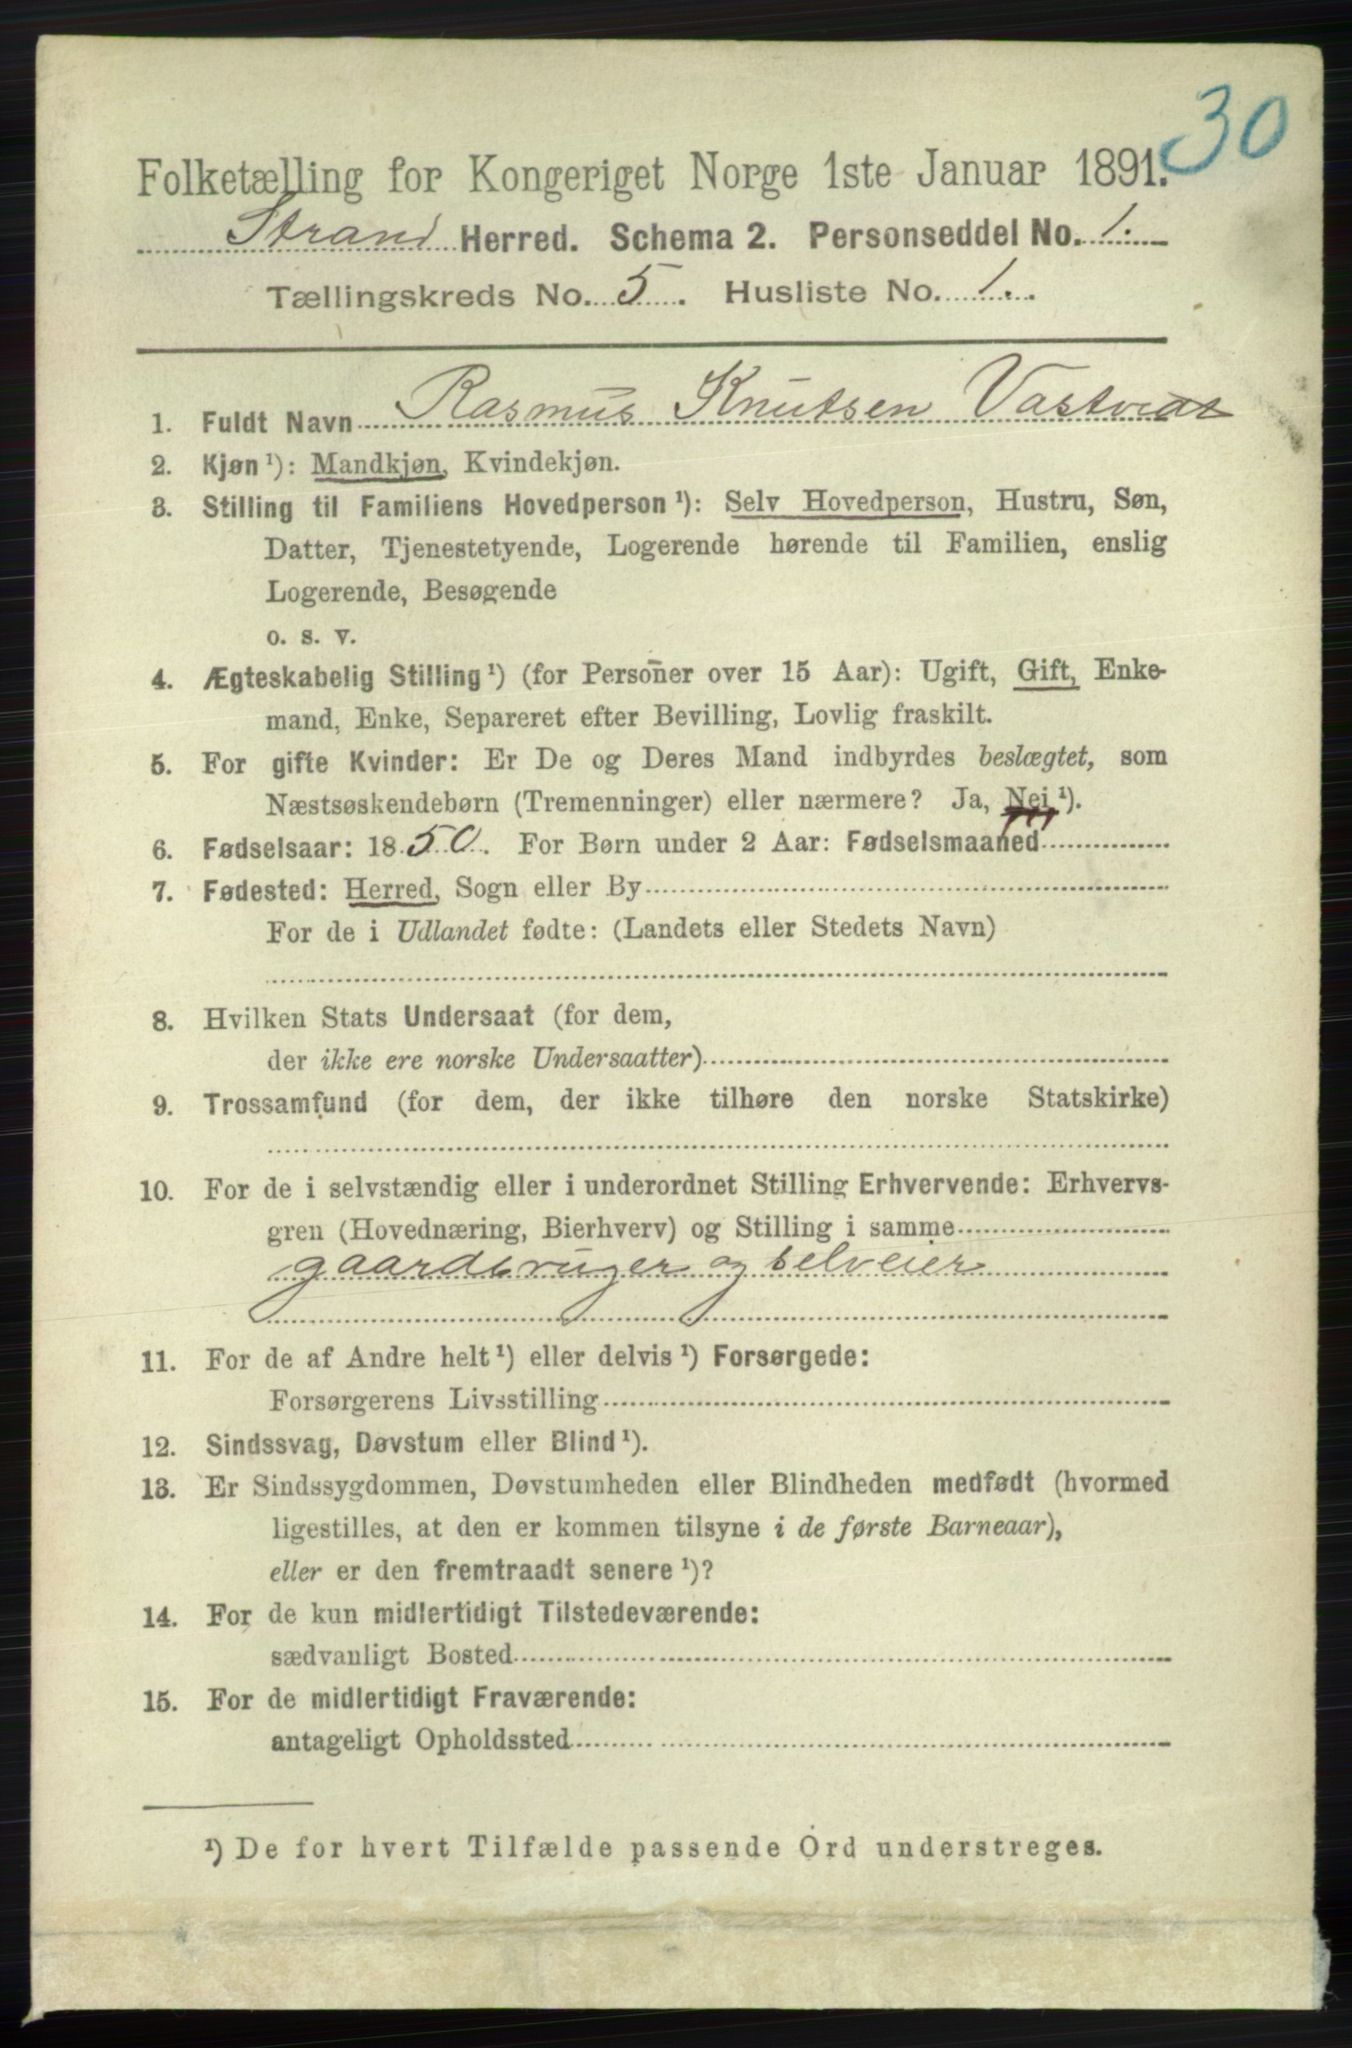 30
Folketælling for Kongeriget Norge 1ste Januar 1891.
Strand Herred. Schema 2. Personseddel No. 1.
Tællingskreds No. 5. Husliste No. 1.
1. Fuldt Navn Rasmus Knutsen
2. Kjøn¹): Mandkjøn, Kvindekjøn.
3. Stilling til Familiens Hovedperson¹): Selv Hovedperson, Hustru, Søn,
Datter, Tjenestetyende, Logerende hørende til Familien, enslig
Logerende, Besøgende
o. s. v.
4. Ægteskabelig Stilling¹) (for Personer over 15 Aar): Ugift, Gift, Enke-
mand, Enke, Separeret efter Bevilling, Lovlig fraskilt.
5. For gifte Kvinder: Er De og Deres Mand indbyrdes beslægtet, som
Næstsøskendebørn (Tremenninger) eller nærmere? Ja, Nei¹).
6. Fødselsaar: 1850. For Børn under 2 Aar: Fødselsmaaned
7. Fødested: Herred, Sogn eller By
For de i Udlandet fødte: (Landets eller Stedets Navn)
8. Hvilken Stats Undersaat (for dem,
der ikke ere norske Undersaatter)
9. Trossamfund (for dem, der ikke tilhøre den norske Statskirke)
10. For de i selvstændig eller i underordnet Stilling Erhvervende: Erhvervs-
gren (Hovednæring, Bierhverv) og Stilling i samme
gaardbruger og selveier
11. For de af Andre helt¹) eller delvis¹) Forsørgede:
Forsørgerens Livsstilling
12. Sindssvag, Døvstum eller Blind¹).
13. Er Sindssygdommen, Døvstumheden eller Blindheden medfødt (hvormed
ligestilles, at den er kommen tilsyne i de første Barneaar),
eller er den fremtraadt senere¹)?
14. For de kun midlertidigt Tilstedeværende:
sædvanligt Bosted
15. For de midlertidigt Fraværende:
antageligt Opholdssted
¹) De for hvert Tilfælde passende Ord understreges.